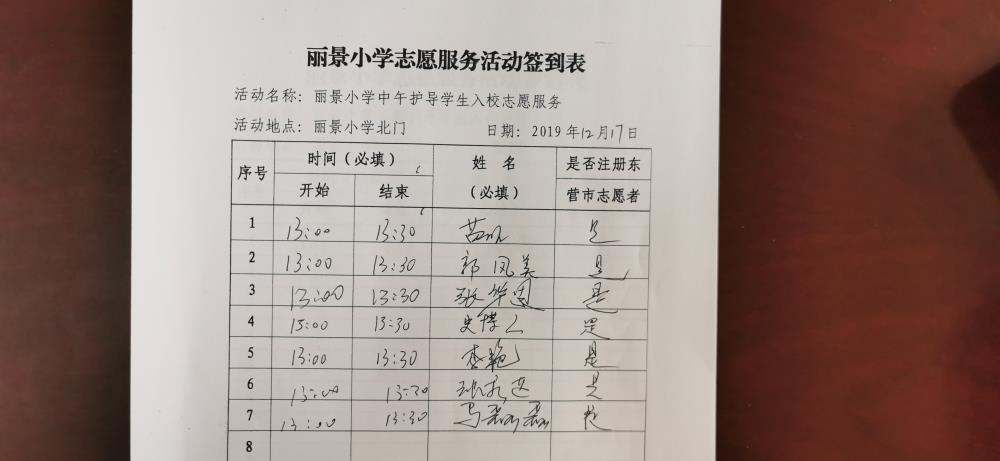 丽景小学志愿服务活动签到表
活动名称：丽景小学中午护导学生入校志愿服务
活动地点：丽景小学北门 日期：2019年12月17日
序号 时间（必填） 姓名（必填） 是否注册东营市志愿者
开始 结束
1 13:00 13:30 是
2 13:00 13:30 郭凤美 是
3 13:00 13:30 张 是
4 13:00 13:30 史 是
5 13:00 13:30 李艳 是
6 13:00 13:30 是
7 13:00 13:30 马磊磊 是
8